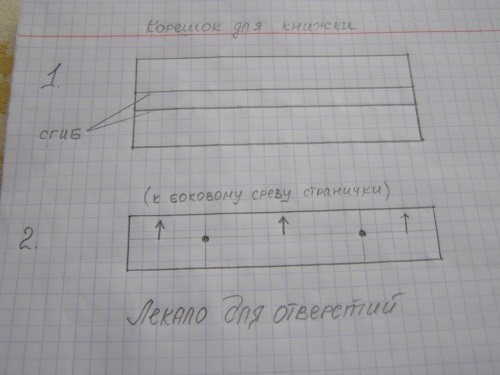 Корешок для книжки
1.
сгиб
(к боковому срезу странички)
2.
Лекало для отверстий